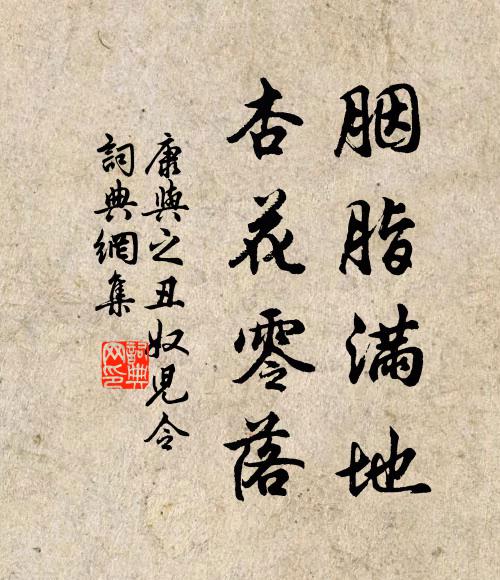 胭脂满地
杏花零落
康與之丑奴兒令
詞典網集
詞典网印